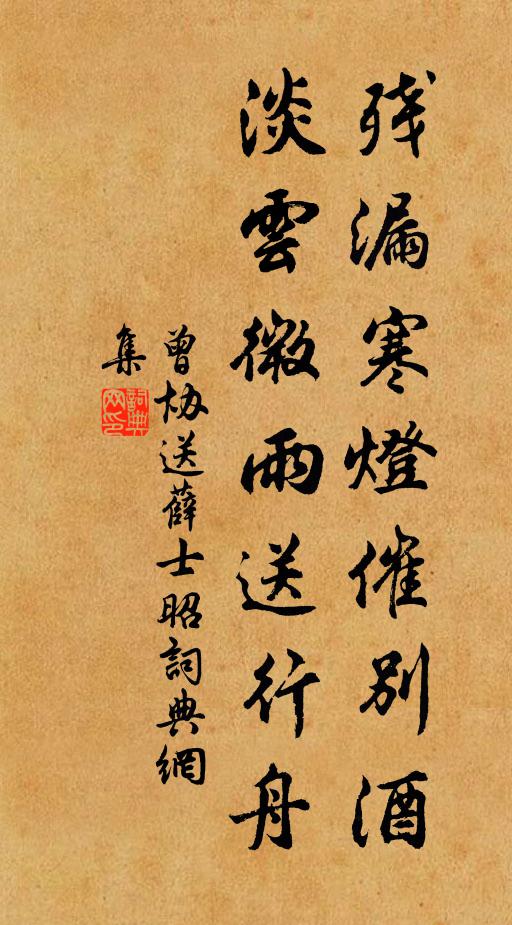 残漏寒燈催別酒
淡雲微雨送行舟
曾协送薛士昭詞典網
集
詞典
网印